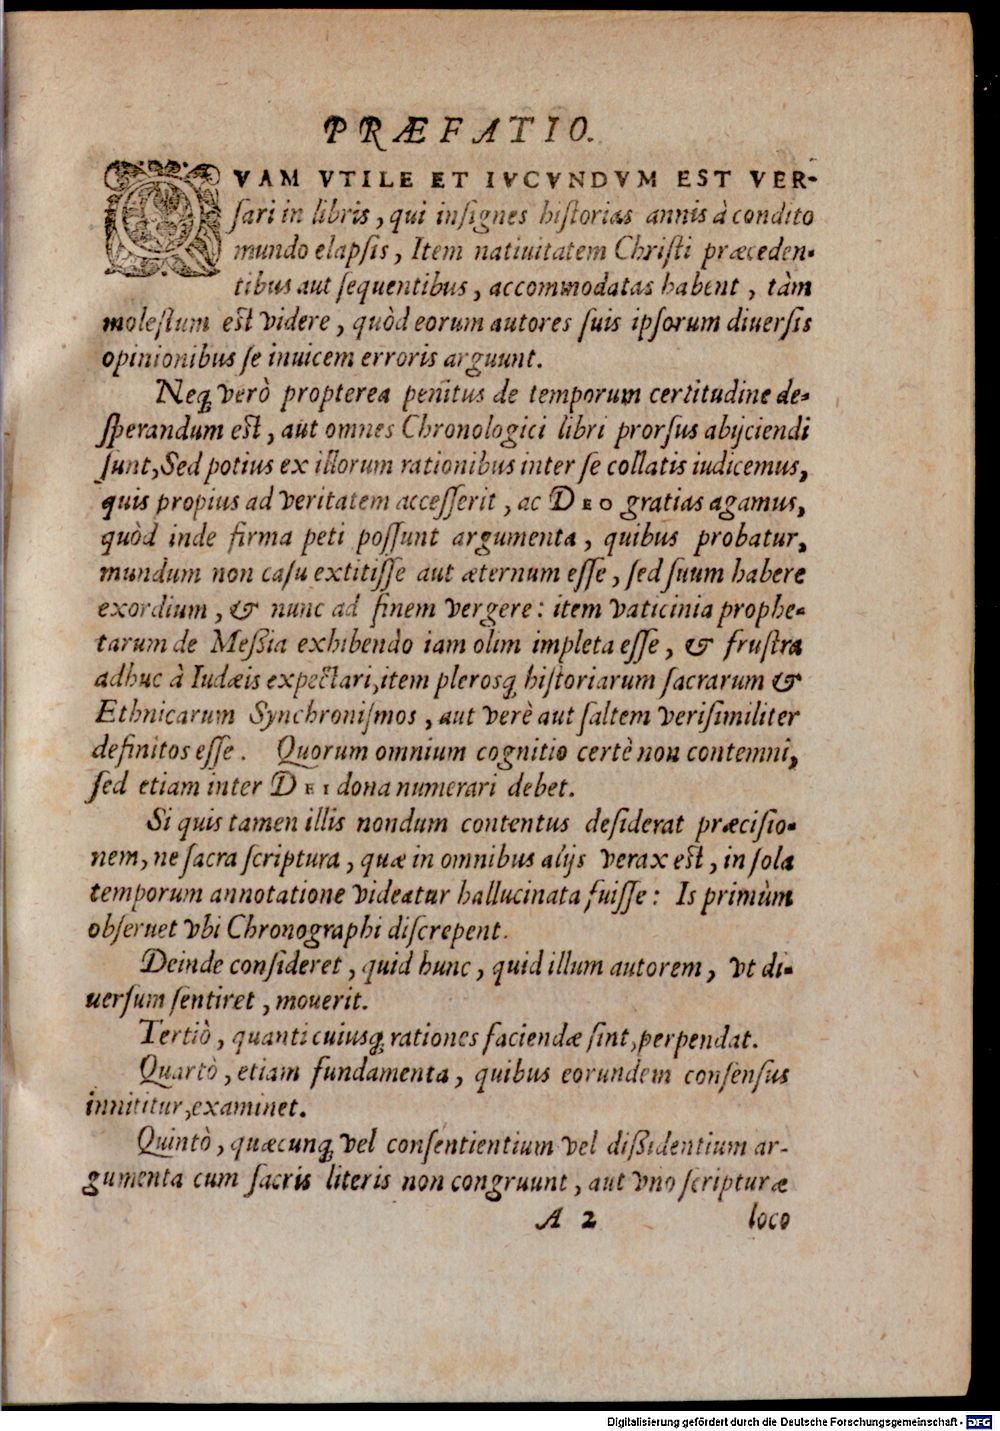 PRÆFATIO.
QVAM VTILE ET IVCVNDVM EST VER-
ſari in libris, qui inſignes hiſtorias annis à condito
mundo elapſis, Item natiuitatem Chriſti præceden-
tibus aut ſequentibus, accommodatas habent, tàm
moleſtum est videre, quòd eorum autores ſuis ipſorum diuerſis
opinionibus ſe inuicem erroris arguunt.
Neq́ verò propterea penitus de temporum certitudine de-
ſperandum est, aut omnes Chronologici libri prorſus abijciendi
ſunt, Sed potius ex illorum rationibus inter ſe collatis iudicemus,
quis propius ad veritatem acceſſerit, ac DEO gratias agamus,
quòd inde firma peti poſſunt argumenta, quibus probatur,
mundum non caſu extitiſſe aut æternum eſſe, ſed ſuum habere
exordium, & nunc ad finem vergere: item vaticinia prophe-
tarum de Meßia exhibendo iam olim impleta eſſe, & fruſtra
adhuc à Iudæis expectari, item plerosq́ hiſtoriarum ſacrarum &
Ethnicarum Synchroniſmos, aut verè aut ſaltem veriſimiliter
definitos eſſe. Quorum omnium cognitio certè non contemni,
ſed etiam inter DEI dona numerari debet.
Si quis tamen illis nondum contentus deſiderat præciſio-
nem, ne ſacra ſcriptura, quæ in omnibus alijs verax est, in ſola
temporum annotatione videatur hallucinata fuiſſe: Is primùm
obſeruet vbi Chronographi diſcrepent.
Deinde conſideret, quid hunc, quid illum autorem, vt di-
uerſum ſentiret, mouerit.
Tertiò, quanti cuiusq́ rationes faciendæ ſint, perpendat.
Quartò, etiam fundamenta, quibus eorundem conſenſus
innititur, examinet.
Quintò, quæcunq́ vel conſentientium vel dißidentium ar-
gumenta cum ſacris literis non congruunt, aut vno ſcripturæ
A 2 loco
Digitalisierung gefördert durch die Deutsche Forschungsgemeinschaft - DFG